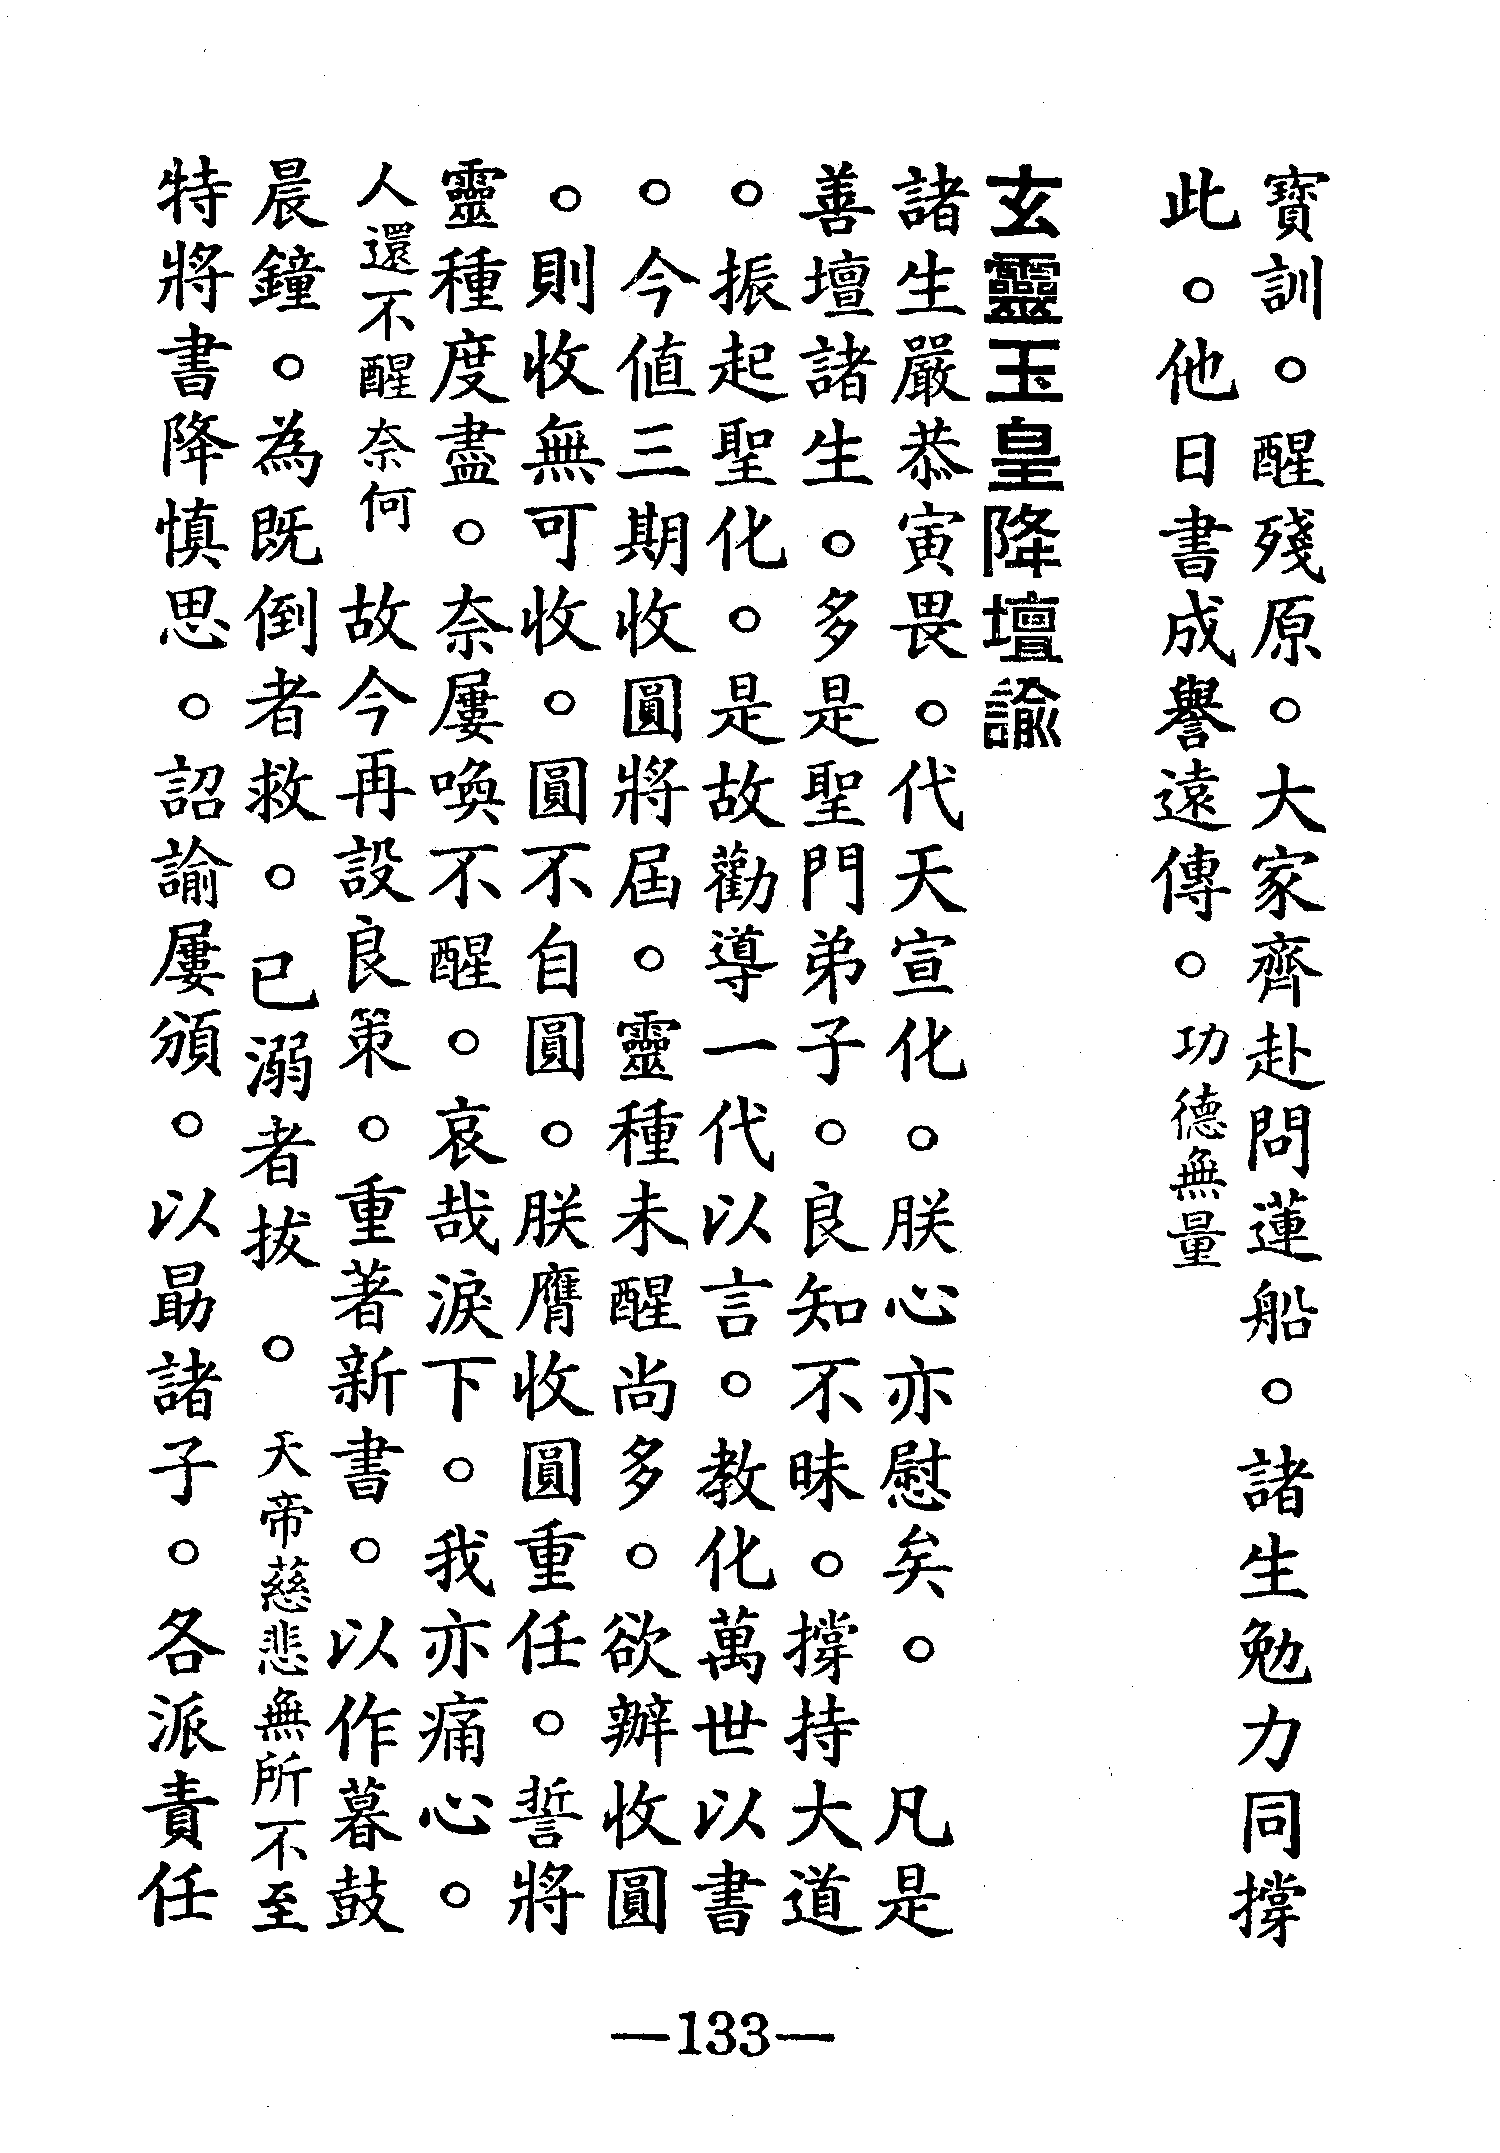 寶訓。醒殘原。大家齊赴問蓮船。諸生勉力同撐
此。他日書成譽遠傳。功德無量
玄靈玉皇降壇諭
諸生嚴恭寅畏。代天宣化。朕心亦慰矣。　凡是
善壇諸生。多是聖門弟子。良知不昧。撐持大道
。振起聖化。是故勸導一代以言。教化萬世以書
。今值三期收圓將屆。靈種未醒尚多。欲辦收圓
。則收無可收。圓不自圓。朕膺收圓重任。誓將
靈種度盡。奈屢喚不醒。哀哉淚下。我亦痛心。
人還不醒奈何　故今再設良策。重著新書。以作暮鼓
晨鐘。為既倒者救。已溺者拔。天帝慈悲無所不至
特將書降慎思。詔諭屢頒。以勗諸子。各派責任
—133—